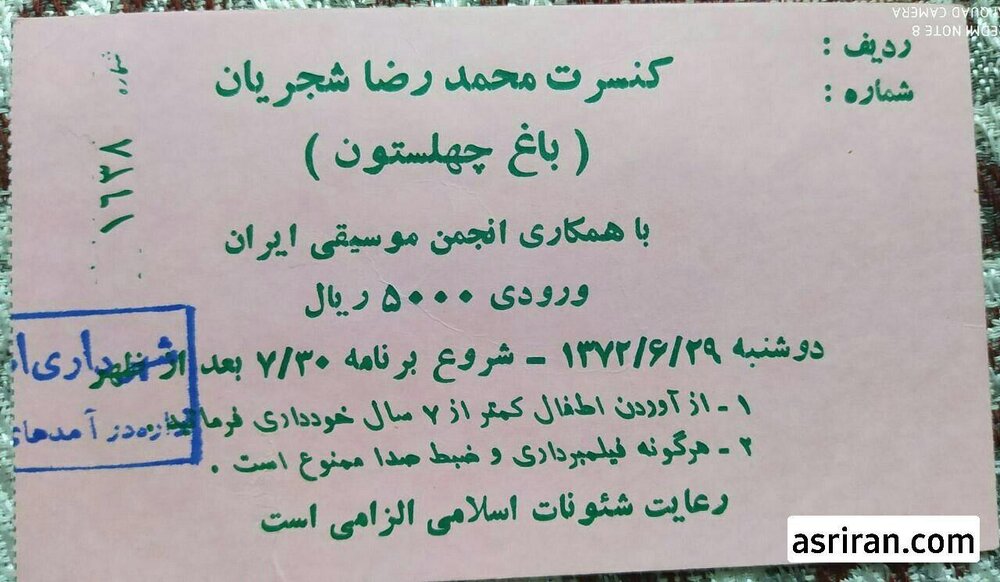 ردیف :
شماره :
کنسرت محمد رضا شجریان
( باغ چهلستون )
با همکاری انجمن موسیقی ایران
ورودی ۵۰۰۰ ریال
دوشنبه ۱۳۷۲/۶/۲۹ - شروع برنامه ۷/۳۰ بعد از ظهر
۱ - از آوردن اطفال کمتر از ۷ سال خودداری فرمائید .
۲ - هرگونه فیلمبرداری و ضبط صدا ممنوع است .
رعایت شئونات اسلامی الزامی است
شماره
۱۶۳۸
شهرداری
درآمدهای
asriran.com
REDMI NOTE 8
QUAD CAMERA